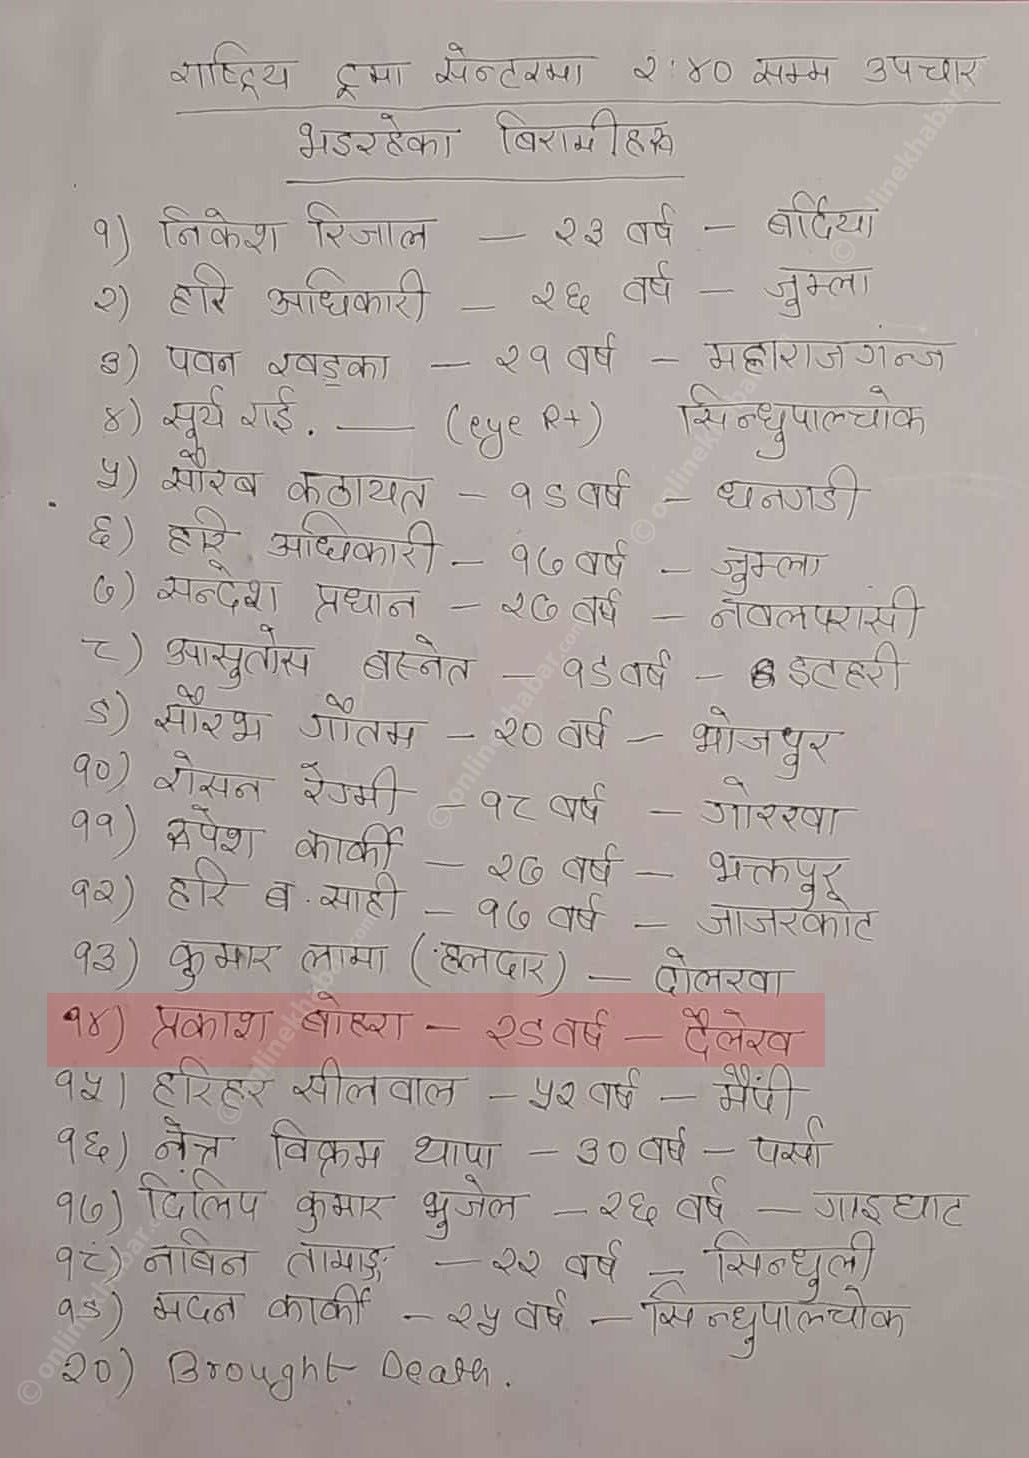 राष्ट्रिय ट्रमा सेन्टरमा २:४० सम्म उपचार
भइरहेका बिरामीहरू
१) निकेश रिजाल — २३ वर्ष — बर्दिया
२) हरि अधिकारी — २६ वर्ष — जुम्ला
३) पवन खड्का — २१ वर्ष — महाराजगन्ज
४) सूर्य राई. — (eye R+) सिन्धुपाल्चोक
५) सौरब कठायत — १९ वर्ष — धनगडी
६) हरि अधिकारी — १७ वर्ष — जुम्ला
७) सन्देश प्रधान — २७ वर्ष — नवलपरासी
८) आसुतोस बस्नेत — १९ वर्ष — इटहरी
९) सौरभ गौतम — २० वर्ष — भोजपुर
१०) रोसन रेग्मी — १८ वर्ष — गोरखा
११) रुपेश कार्की — २७ वर्ष — भक्तपुर
१२) हरि ब. साही — १७ वर्ष — जाजरकोट
१३) कुमार लामा (हलदार) — दोलखा
१४) प्रकाश बोहरा — २९ वर्ष — दैलेख
१५) हरिहर सीलवाल — ५२ वर्ष —
१६) नेत्र विक्रम थापा — ३० वर्ष — पर्सा
१७) दिलिप कुमार भुजेल — २६ वर्ष — गाइघाट
१८) नबिन तामाङ्ग — २२ वर्ष — सिन्धुली
१९) मदन कार्की — २५ वर्ष — सिन्धुपाल्चोक
२०) Brought Death.
© onlinekhabar.com